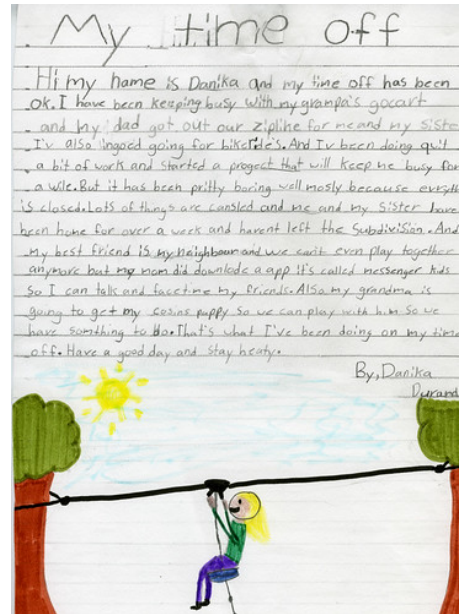 My time off
Hi my name is Danika and my time off has been
ok. I have been keeping busy with my grampa's gocart
and my dad got out ourziplike for me and my sister
I'v also ingoed going for bikeride's. And Iv been doing quit
a bit of work and started a progect that will keep me busy for
a wile. But it has been pritty boring well mostly because everyth
is closed. Lots of things are cansled and me and my sister have
been home for over a week and havent left the Subdivision. And
my best friend is my neighbour and we can't even play together
anymore but my mom did downlode a app it's called messenger kids
so I can talk and facetime my friends. Also my grandma is
going to get my cosins puppy so we can play with him so we
have somthing to do. That's what I've been doing on my time
off. Have a good day and stay healty.
By, Danika
Durand